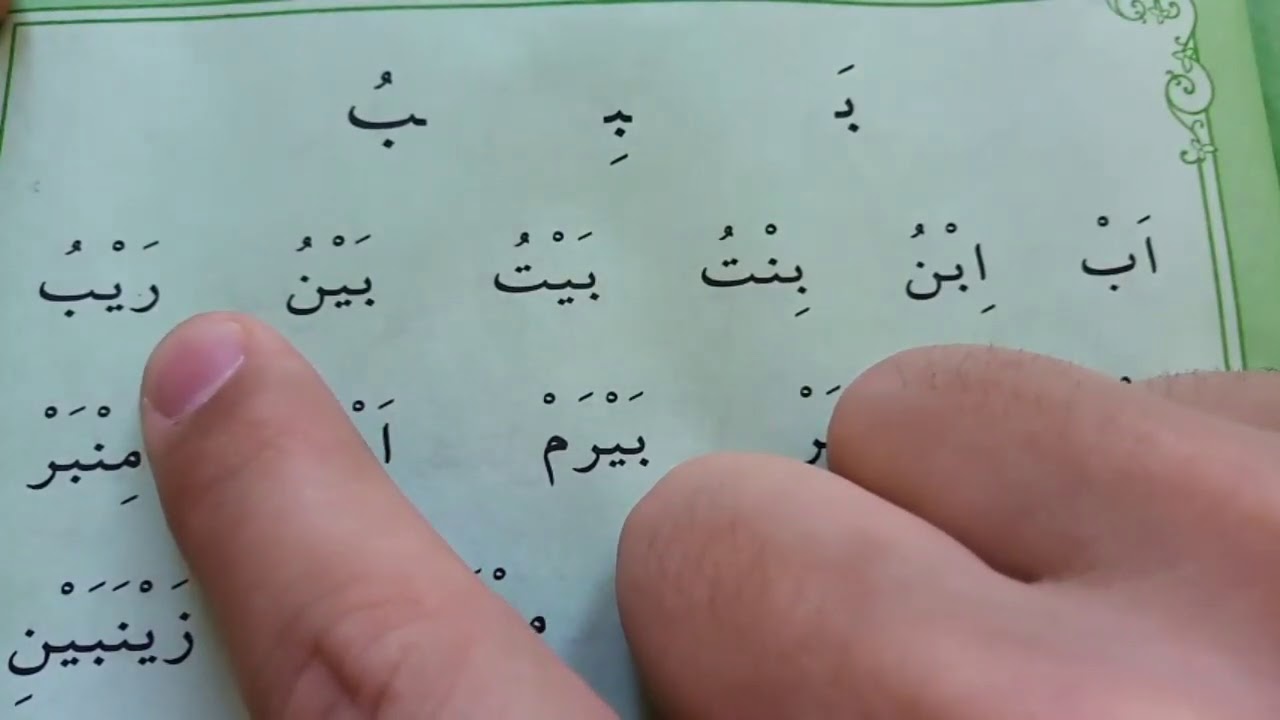 بَـ ـبِـ ـبُ
اَبْ اِبْنُ بِنْتُ بَيْتُ بَيْنُ رَيْبُ
بَيْرَمْ مِنْبَرْ
زَيْنَبَيْنِ